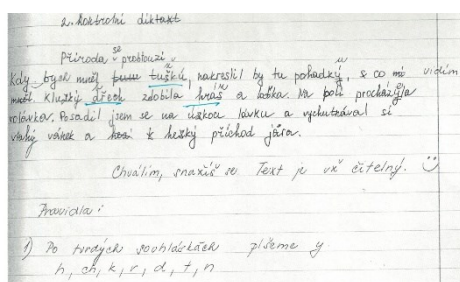 2. kontrolní diktát
Příroda se probouzí
Kdy bych měl tušků, nakreslil by tu pohadků, s co vidím
Kluzký dřech zdobila hráš a loďka. Na poli procházela
rolávka. Posadil jsem se na úzkou lávku a vychutnával si
vlahý vánek a k hezký příchod jára.
Chválím, snažíš se. Text je už čitelný. :)
Pravidla:
1) Po tvrdých souhláskách píšeme y
h, ch, k, r, d, t, n